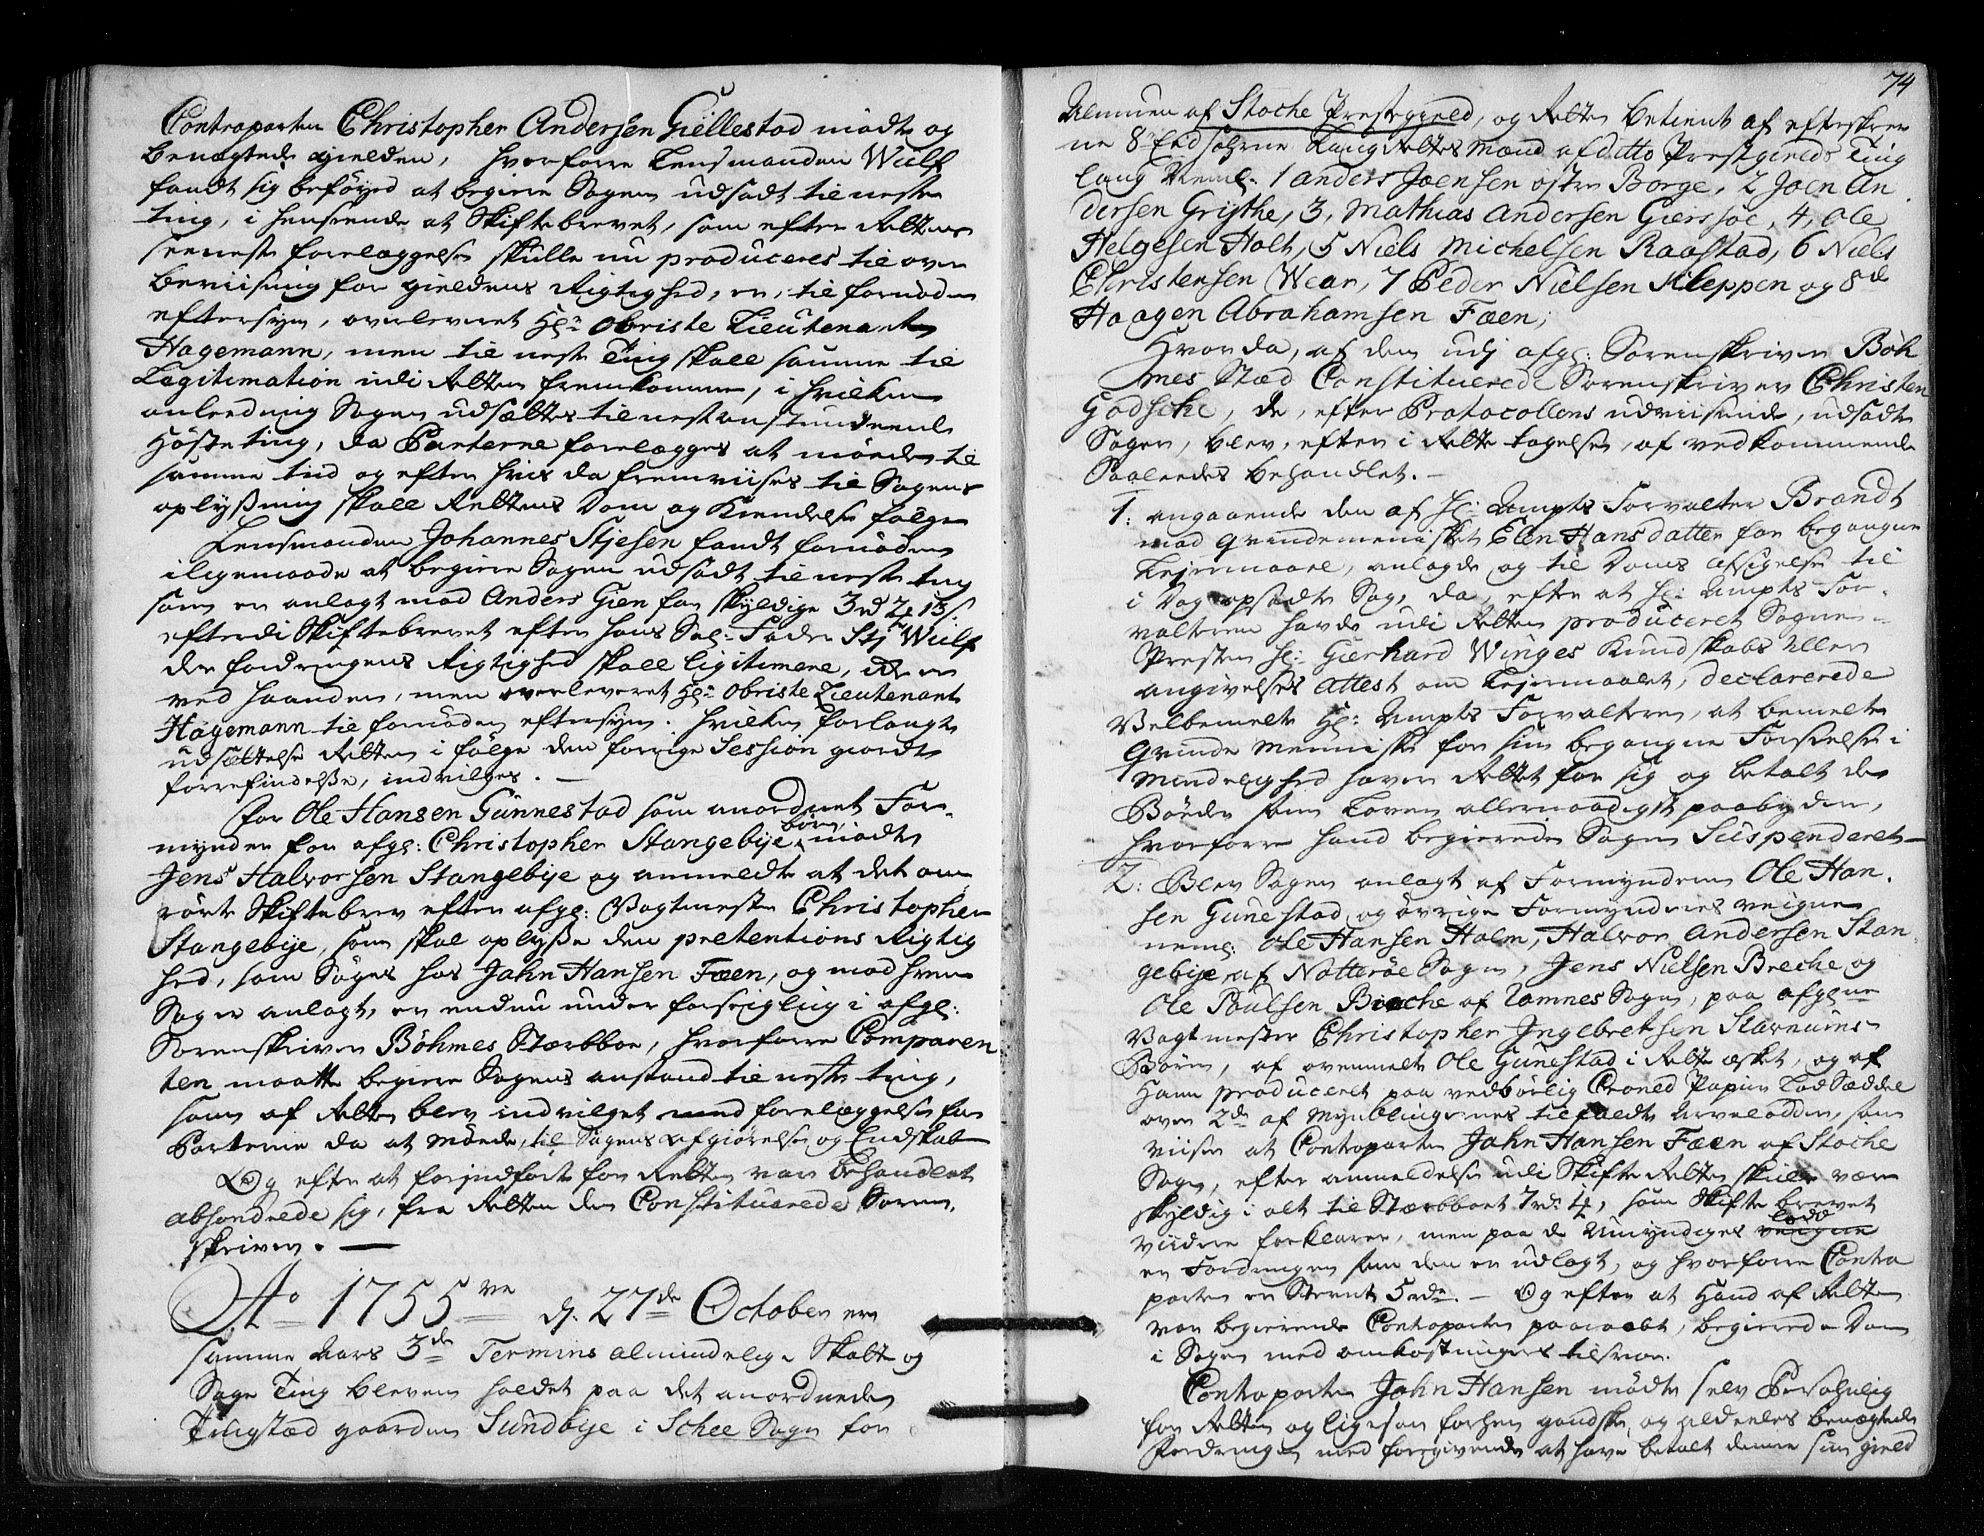 Contraparten Christopher Andersen Gillestad mødte og
benægtede gielden, hvorforre Lensmanden Wulf
fandt sig beføyed at begiere Sagen udsadt til neste
ting, i henseende at Skiftebrevet, som efter Rettens
seeneste forelæggelse skulle nu produceres til over
beviisning for gieldens Rigtighed, er, til fornøden
eftersyn, overleveret Hr. Obriste Lieutenant
Hagemann, men til neste Ting skall samme til
Legitimation udi Retten fremkomme, i hvilken
anleedning Sagen udsættes til nest anstundende
Høste ting, da Parterne forelægges at møede til
samme tiid og efter hvis da fremviises til Sagens
oplyßning skall Rettens Dom og Kiendelse følge
Lensmanden Johannes Stjesen fandt fornøden
iligemaade at begiere Sagen udsadt til neste ting
som er anlagt mod Anders Gien for skyldige 3 rd 2 15 s.
efterdi Skiftebrevet efter hans Sal. Fader Stj Wulf
der fordringens Rigtighed skall ligitimere, ikke er
ved haanden, men overleveret Hr. Obriste Lieutenant
Hagemann til fornøden eftersyn. hvilken forlangte
udsættelse Retten i følge den forrige Session giorde
forrefindelße, indvilges. —
For Ole Hansen Gunnestad som anordnet For-
mynder for afg: Christopher Stangebye børn mødte
Jens Halvorsen Stangebye og anmeldte at det om
rørte Skiftebrev efter afg: Vagtmester Christopher
Stangebye, som skal oplyße den pretentions Rigtig
hed, som Søges hos Jahn Hansen Fæen, og mod hvem
Sag er anlagt, er endnu under forseigling i afg:
Sorenskriver Böhmes Stærbboe, hvorforre Comparen
ten maatte begiere Sagens anstand til neste ting,
som af Retten blev indvilget med forelæggelse for
Parterne da at møede, til Sagens afgiørelse og Endskab
Og efter at forindførte for Retten var behandlet
absondrede sig, fra Retten den Constituerede Soren,
skriver. —
Ao 1755 ve d. 27de October er
samme Aars 3de Termins almindelige Skatte og
Sage Ting bleven holdet paa det anordnede
Tingstæd gaarden Sundbye i Schee Sogn for
74
Almuen af Stoche Prestegield, og Retten betient af efterskrev
ne 8te Eedsorne Laug Rettes Mænd af ditto Prestgields Ting
laug Neml. 1 Anders Joensen østre Borge, 2 Joen An
dersen Gristhe, 3, Mathias Andersen Gierssøe, 4, Ole
Helgesen Holt, 5 Niels Michelsen Raastad, 6 Niels
Christensen Wear, 7 Peder Nielsen Kleppen og 8de
Haagen Abrahamsen Fæen;
Hvor da, af den udj afg: Sorenskriver Böh
mes Stæd Constituerede Sorenskriver Christen
Godsche, de, efter Protocollens udviisende, udsadte
Sager, blev, efter i Rette tagelse, af vedkommende
Saaleedes behandlet. —
1: angaaende den af Hr: Ampts Forvalter Brandt
mod Qvindemennisket Elen Hansdatter for begangne
Leyermaal, anlagde og til Doms Afsigelse til
i Dag opsadte Sag, da, efter at Hr: Ampts For-
valteren havde udi Retten produceret Sogne-
Presten Hr: Gierhard Winges Kundskabs Eller
angivelses Attest om Leyermaalet, declarerede
Velbemelte Hr: Ampts Forvalteren, at bemelte
Qvinde Menniske for sin begangne Forseelse i
Mindelighed haver Rettet for sig og betalt de
Bøeder som Loven allernaadigst paabyder,
hvorforre hand begierede Sagen Suspenderet —
2: Blev Sagen anlagt af Formynderen Ole Han-
sen Gunestad og øvrige Formynderes veigne
neml: Ole Hansen Holm, Halvor Andersen Stan-
gebye, af Nøtterøe Sogn, Jens Nielsen Breche og
Ole Paulsen Breche af Ramnes Sogn, paa afg.ne
Vagtmester Christopher Jngebretsen Starnums
Børn, af ovenmelte Ole Gunestad i Rette æsket, og af
Ham produceret paa vedbørlig Croned Papiir Lod Sæddel
over 2de af Myndlingernes tilfaldte Arvelodder, som
viiser at Contraparten Jahn Hansen Fæen af Stoche
Sogn, efter anmeldelse udi Skifte Retten skulle være
skyldig i alt til Stærbboet 7 rd: 4, som Skifte brevet
viidere forklarer, men paa de Umyndiges lodd
er Fordringen som den er udlagt, og hvorforre Contra
parten er Stevnt 5 rdr. — Og efter at Hand af Retten
var begierende Contraparten paaraabt, begierede Dom
i Sagen med omkostningers tilsvar.
Contraparten Jahn Hansen mødte selv Persohnlig
for Retten og ligesom forhen gandske og aldeeles benægtede
Fordringen med foregivende at have betalt denne sin gield